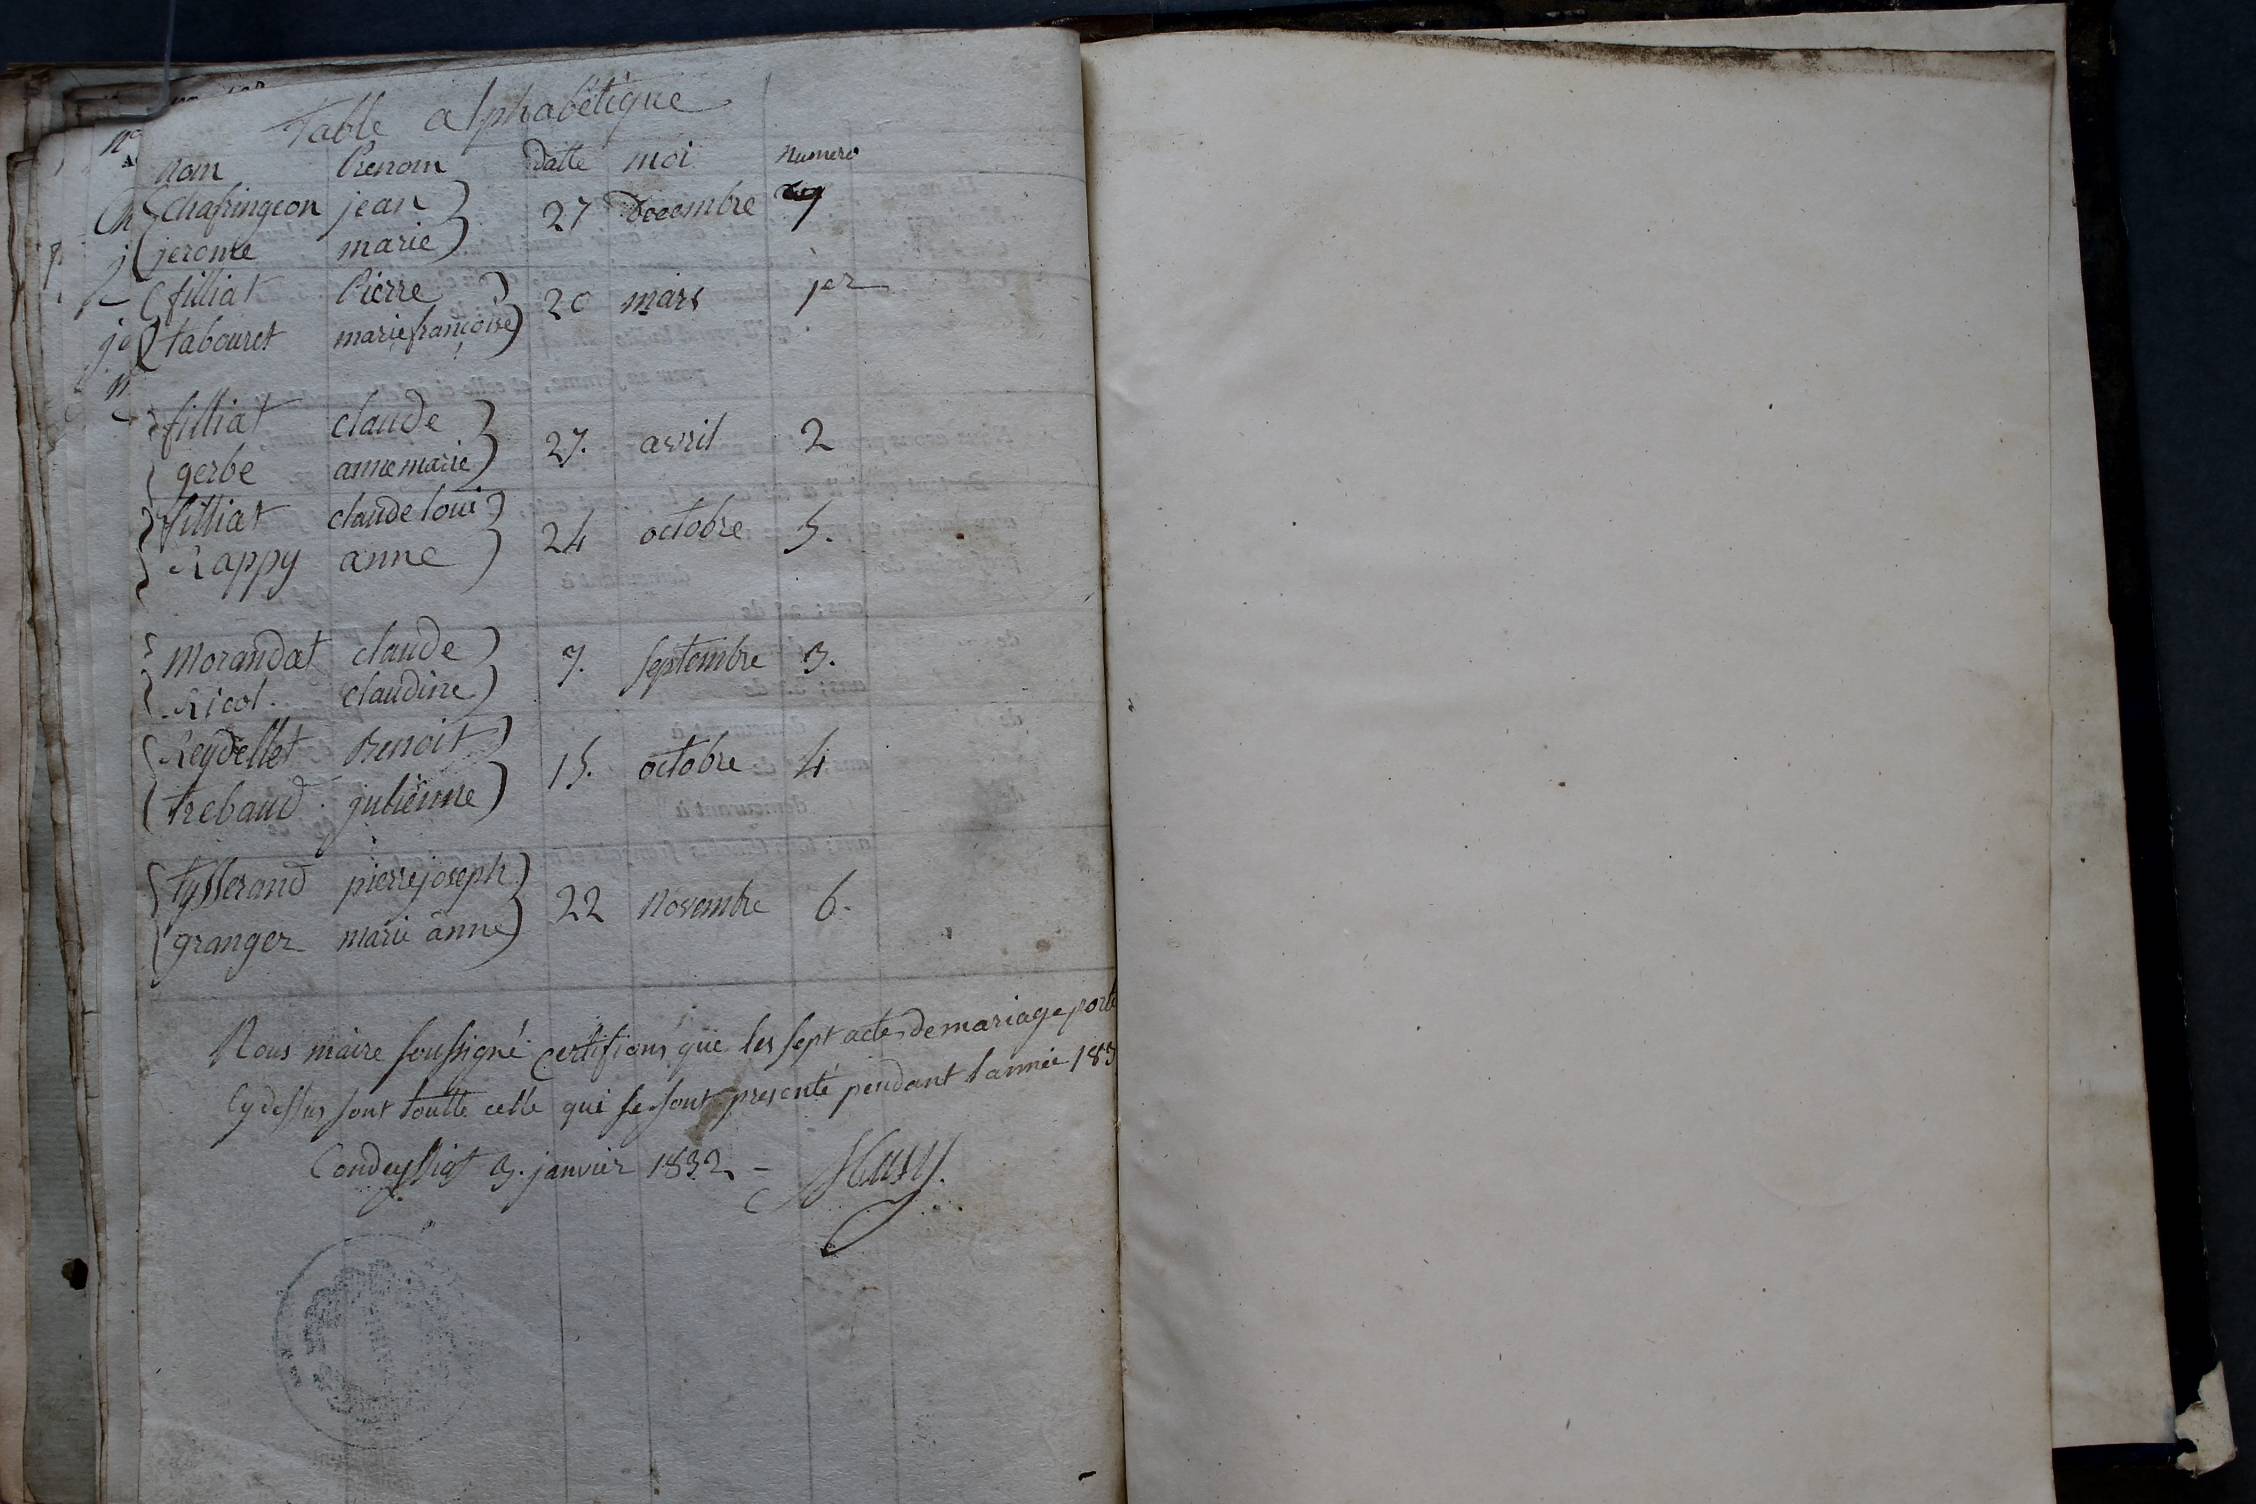 Table alphabétique
nom Prenom datte moi Numero
Chafringeon jean 27 Decembre 7
jerome marie
filliat Pierre 20 mars 1er
tabouret marie françoise
filliat claude 27. avril 2
gerbe anne marie
filliat claude loui 24 octobre 5.
Rappy anne
Morandat claude 7. septembre 3.
Ricol. claudine
Reydellet Benoit 15. octobre 4
trebaud julienne
tysserand pierre joseph 22 Novembre 6.
granger marie anne
Nous maire soussigné certifions que les sept acte de mariage porté
Cy dessus sont toutte celle qui se sont presenté pendant l'année 183
Condeyssiat 3. janvier 1832